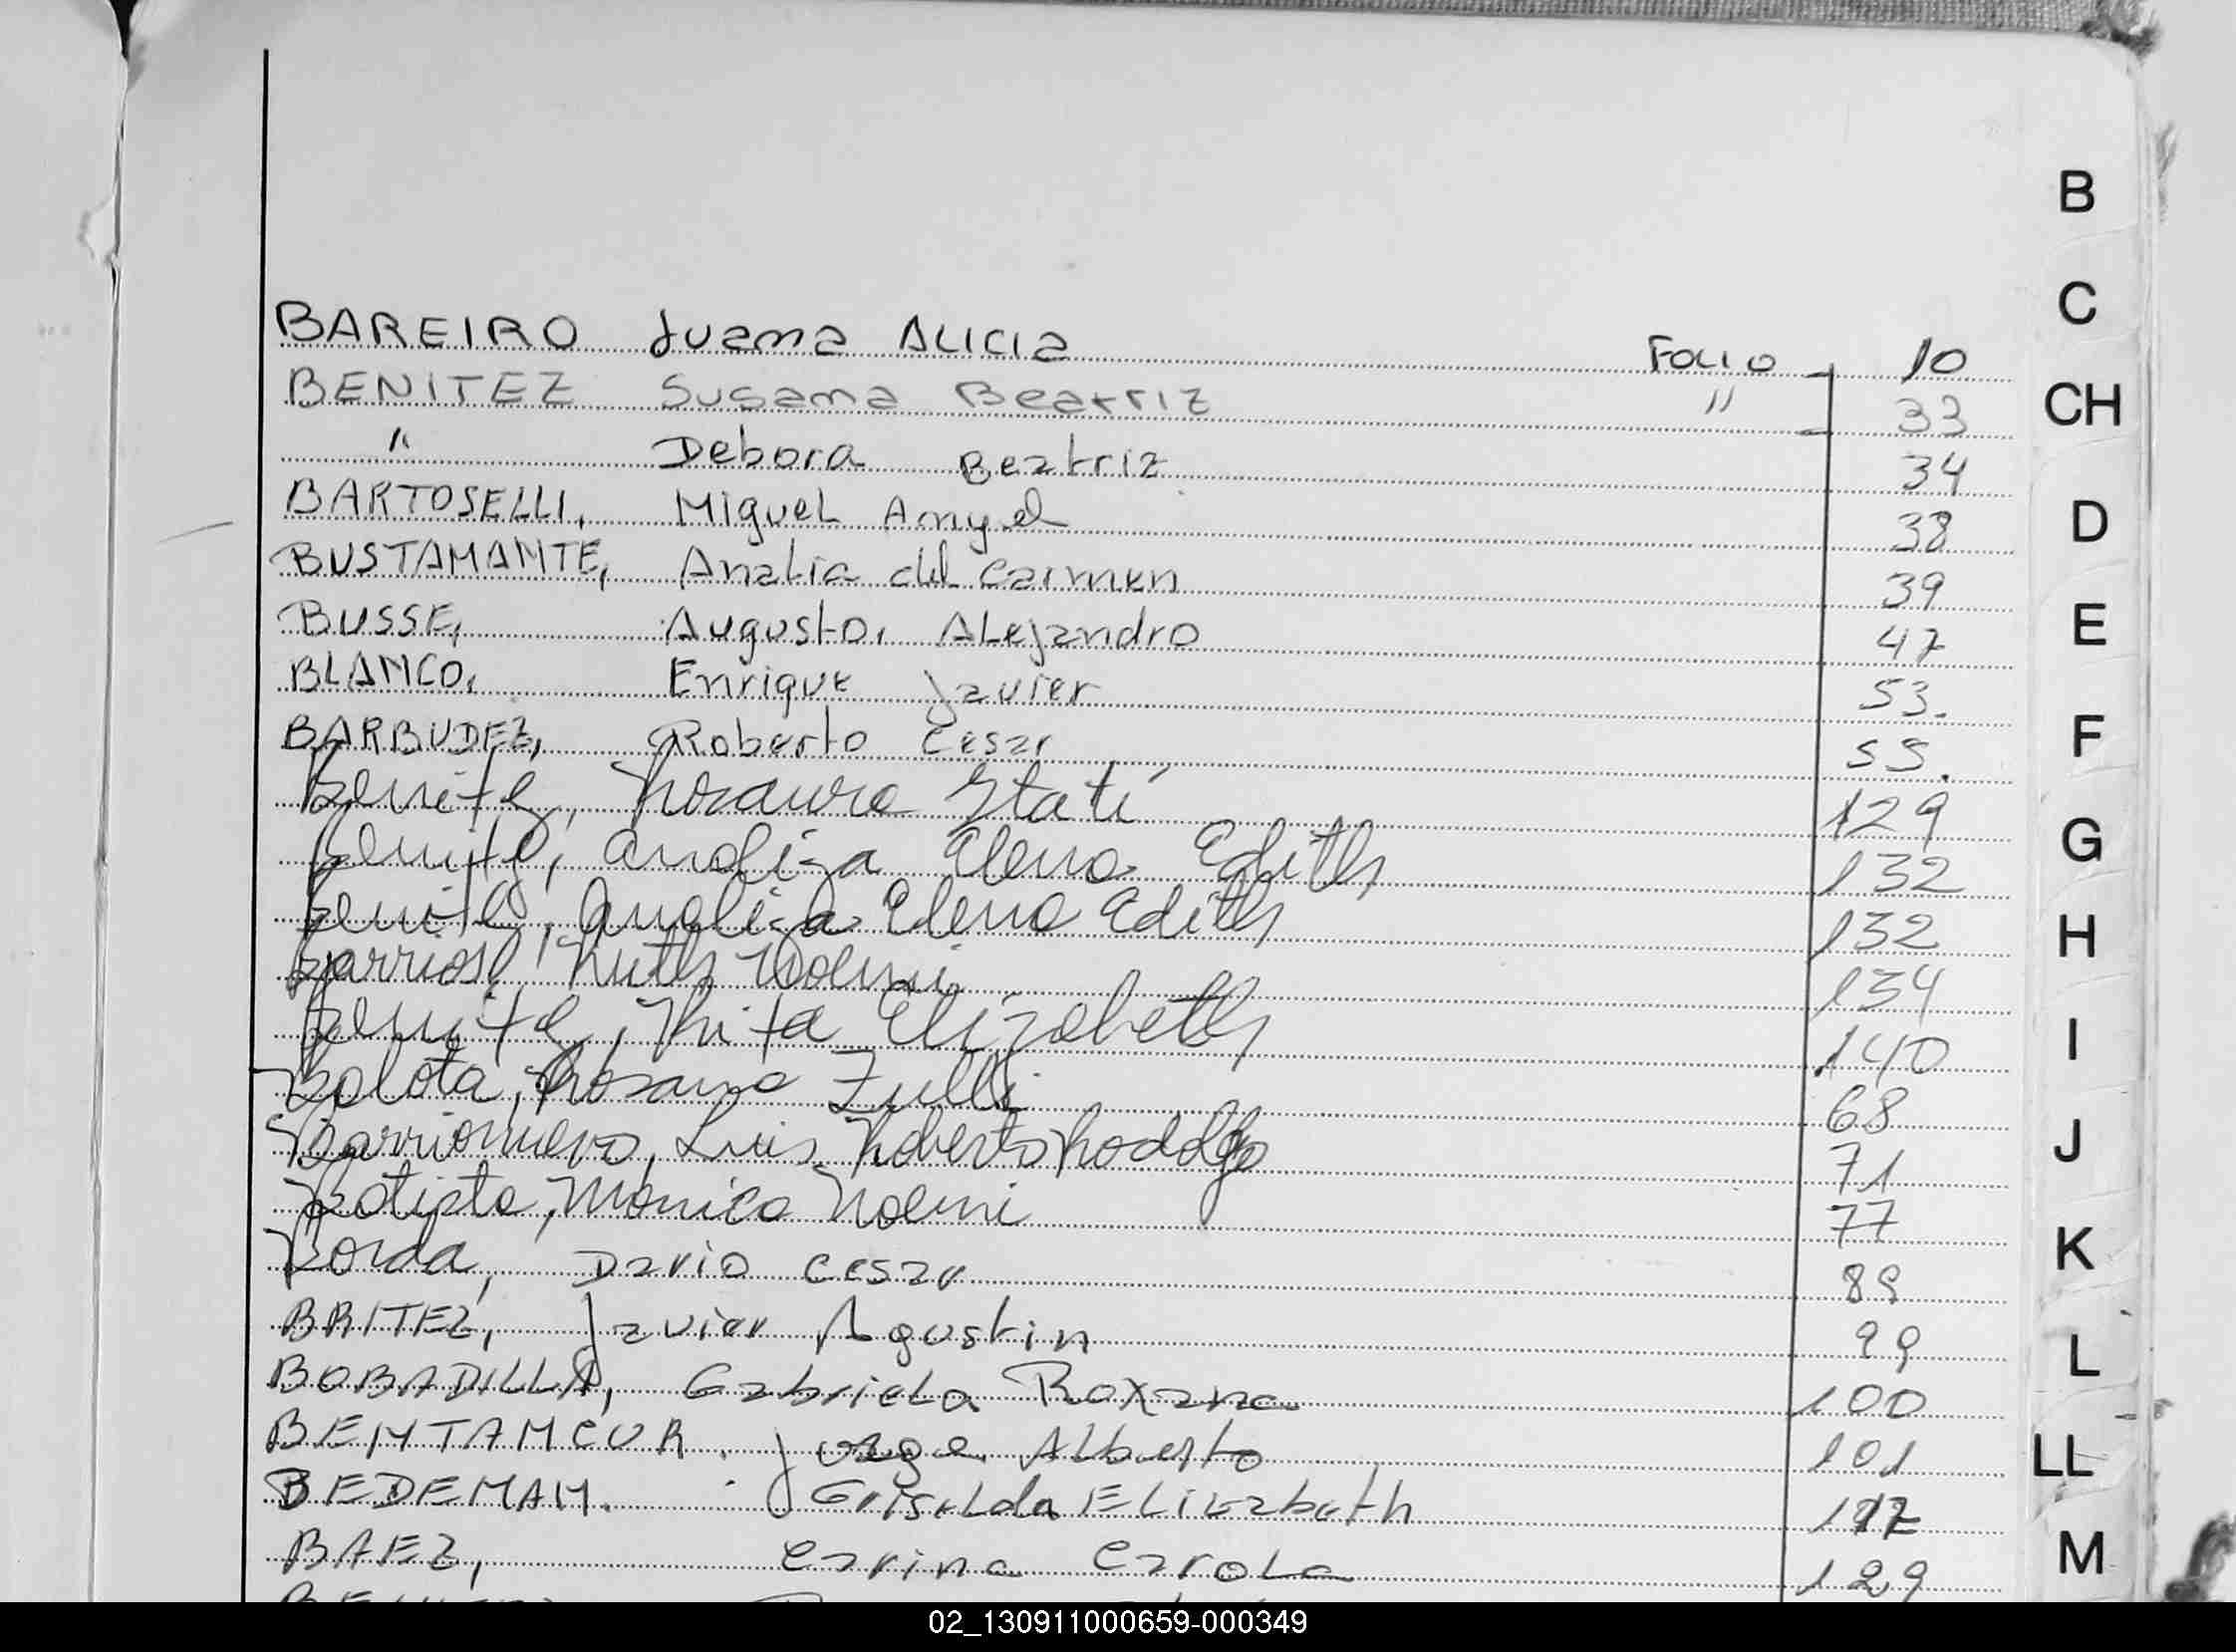 BAREIRO Juana ALICIA Folio 10
BENITEZ Susana Beatriz " 33
" Debora Beatriz 34
BARTOSELLI, Miguel Angel 38
BUSTAMANTE, Analia del Carmen 39
BUSSE, Augusto, Alejandro 47
BLANCO, Enrique Javier 53.
BARBUDEZ, Roberto Cesar 55.
Benitez, Rosaura Itatí 129
Benitez, Analiza Elena Edith 132
Benitez, Analiza Elena Edith 132
Barrios, Ruth Noemi 134
Benitez, Rita Elizabeth 140
Bolota, Rosana Zulli 68
Barrionuevo, Luis Roberto Rodolfo 71
Batista, Monica Noemi 77
Borda, Dario Cesar 89
BRITEZ, Javier Agustin 99
BOBADILLA, Gabriela Roxana 100
BENTANCUR. Jorge Alberto 101
BEDEMAN. Griselda Elizabeth
BAEZ, Carina Carola 129
B
C
CH
D
E
F
G
H
I
J
K
L
LL
M
02_130911000659-000349